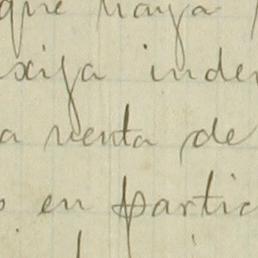 que haya
exija inde
a venta de
o en partic